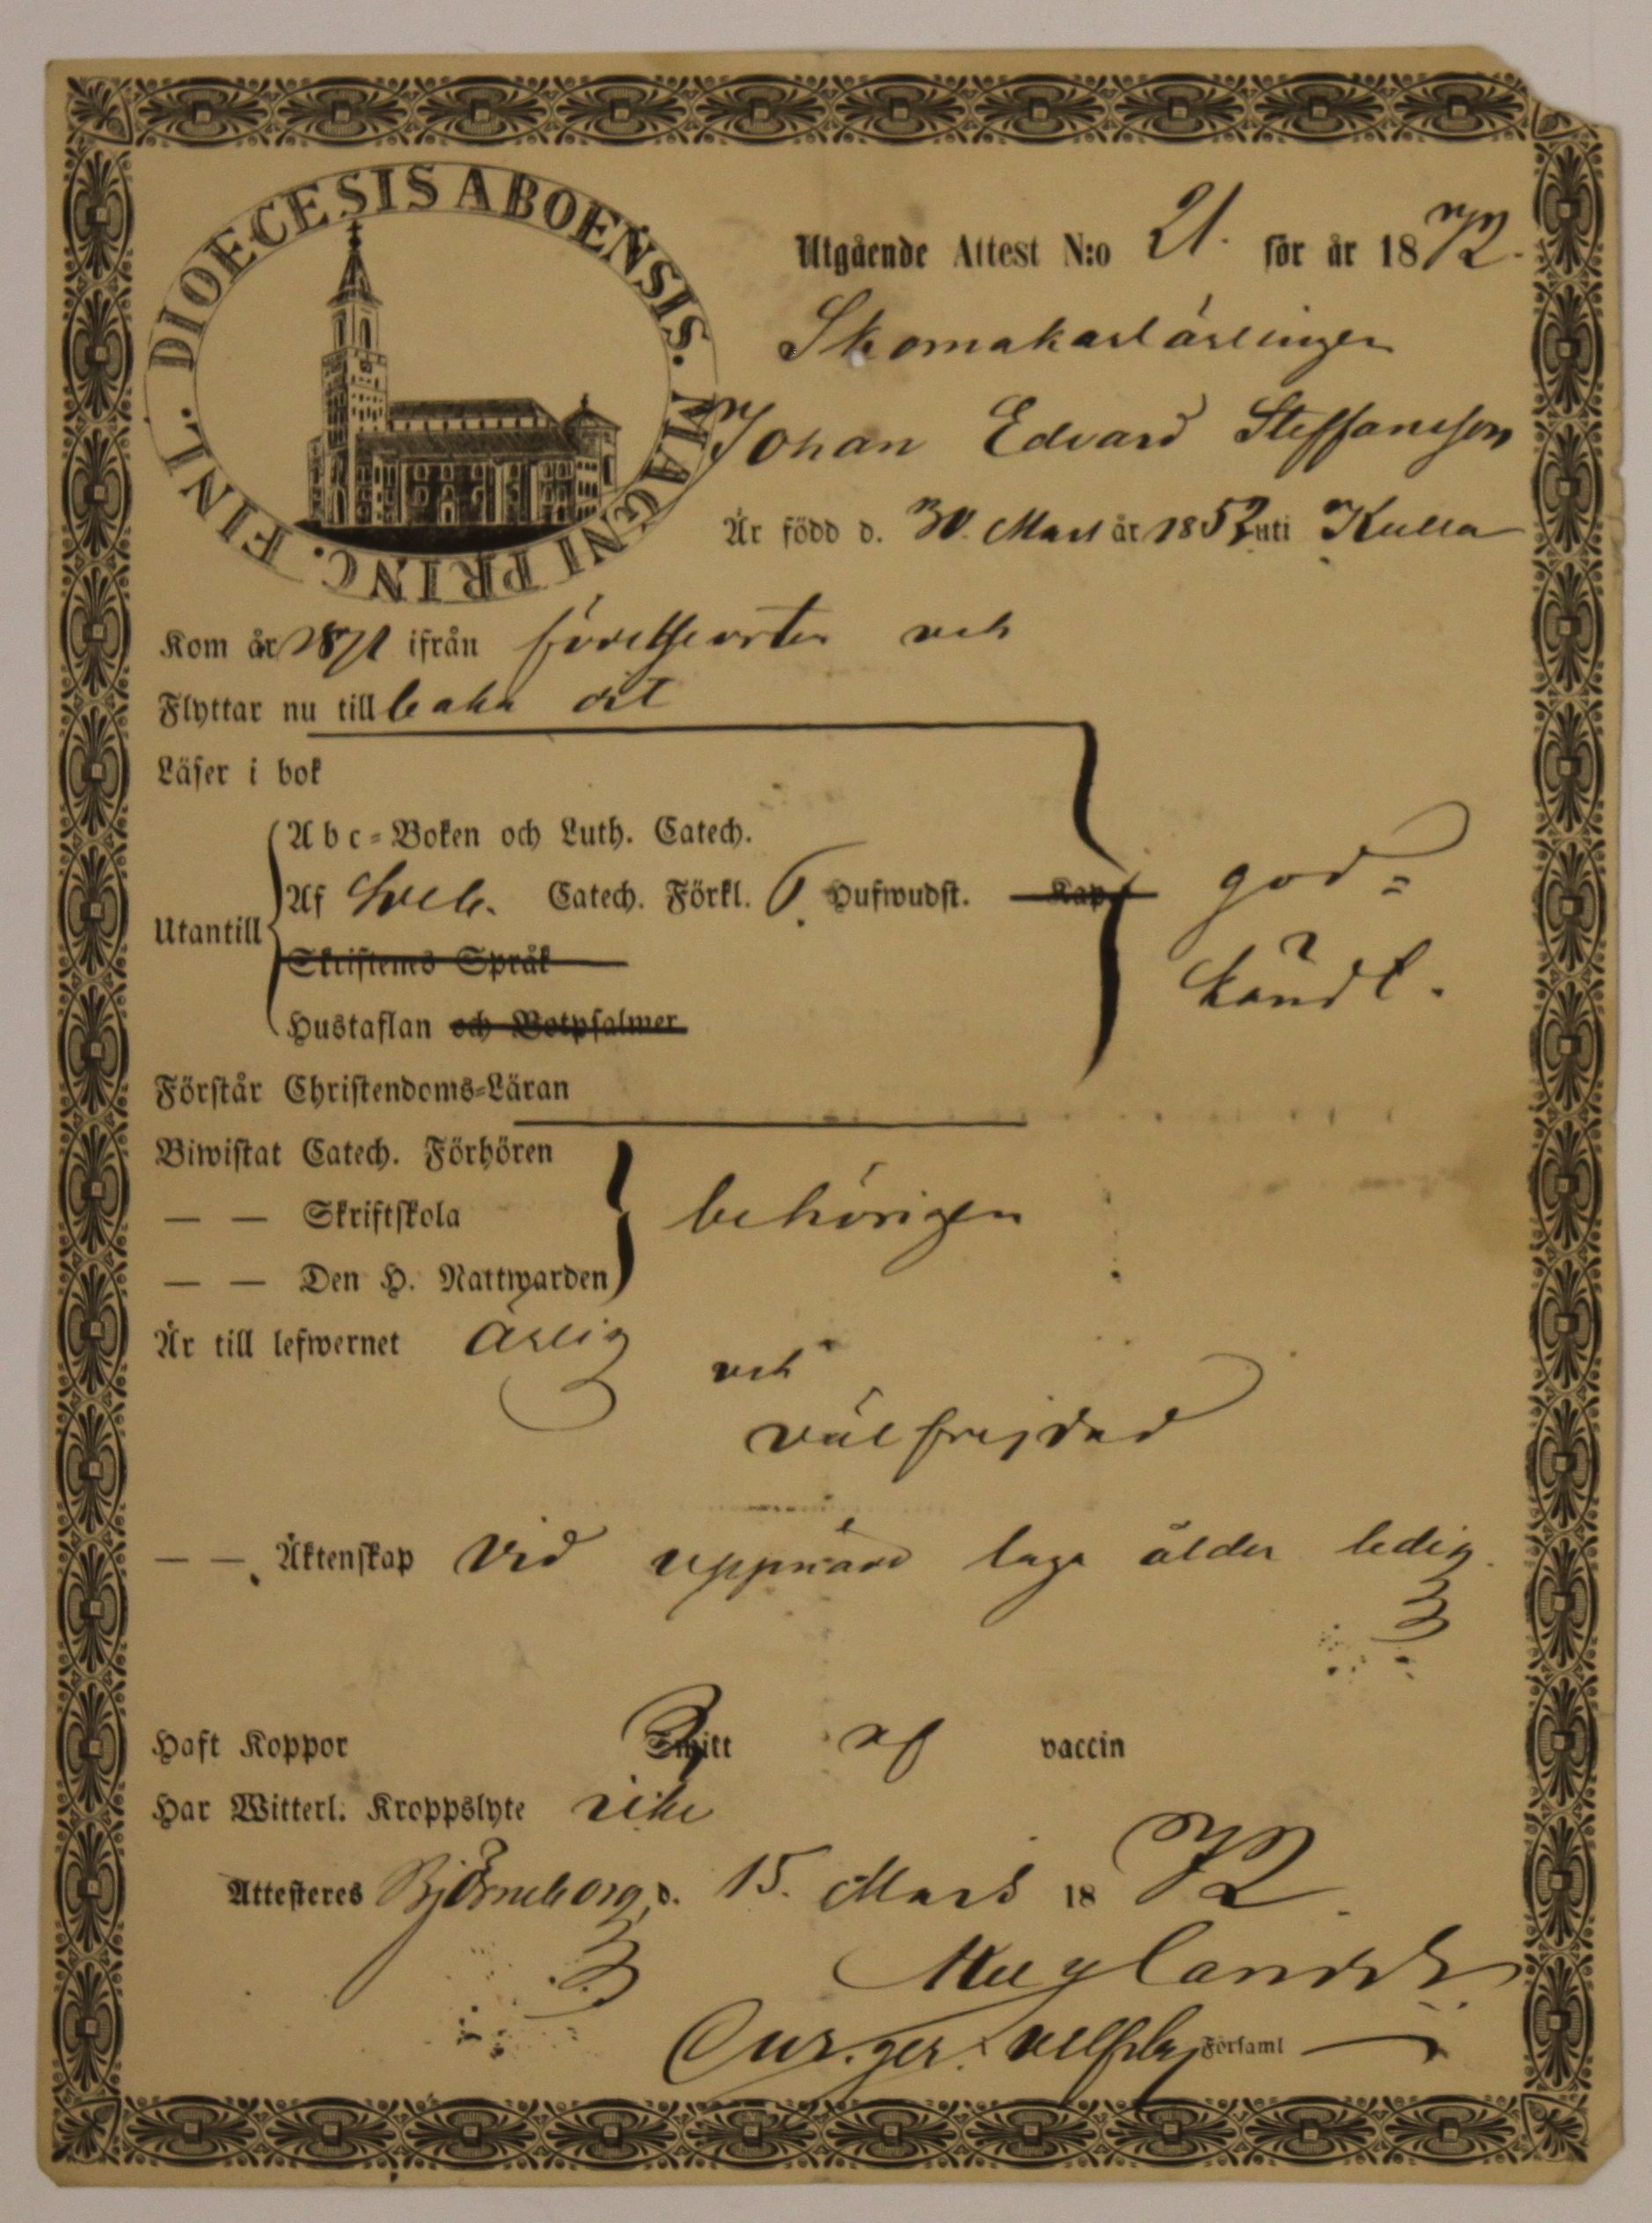 DIOECESIS ABOENSIS. MAGNI PRINC. FINL.
Utgående Attest N:o 21. för år 1872.
Skomakarlärlingen
Johan Edvard Steffansson
Är född d. 30 Mars år 1852 uti Kulla
Kom år 1871 ifrån och
Flyttar nu tillbaka dit
Läser i bok
Abc-Boken och Luth. Catech.
Utantill Af Sveb. Catech. Förkl. 6 Hufwudst. Kap god-
Skriftens Språk
känd t.
Hustaflan och Botpsalmer
Förstår Christendoms-Läran
Biwistat Catech. Förhören
— — Skriftskola behörigen
— — Den H. Nattwarden
Är till lefwernet ärlig
och
välfrejdad
— — Äktenskap vid uppnådd laga ålder ledig.
Haft Koppor Smitt af vaccin
Har Witterl. Kroppslyte icke
Attesteres Björneborg, d. 15. Mars 1872.
Församl